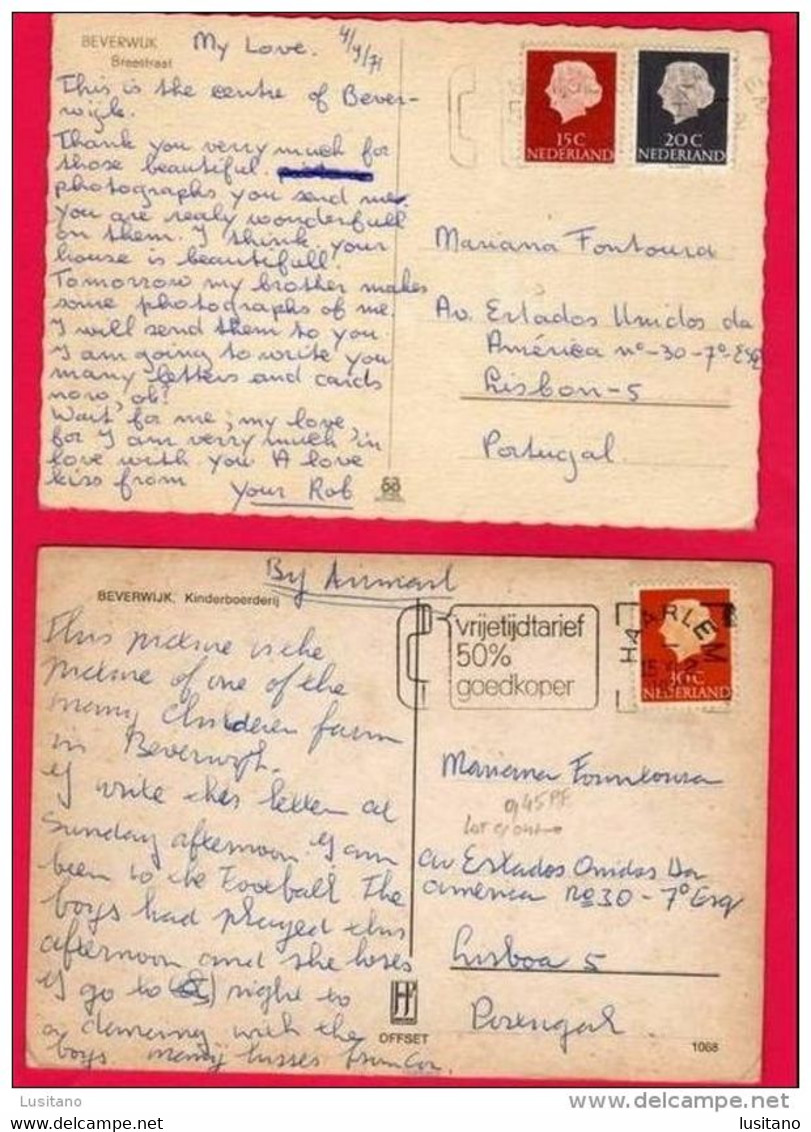 BEVERWIJK
Breestraat
My Love. 4/9/71
This is the centre of Bever-
wijk.
Thank you verry much for
those beautiful
photographs you send me.
you are realy wonderfull
on them. I think your
house is beautifull.
Tomorrow my brother makes
some photographs of me.
I will send them to you.
I am going to write you
many letters and cards
now, ok?
Wait for me, my love,
for I am verry much in
love with you A love
kiss from Your Rob
15 C
NEDERLAND
20 C
NEDERLAND
Mariana Fontoura
Av. Estados Unidos da
América nº-30-7º-Esq
Lisbon-5
Portugal
By Airmail
BEVERWIJK, Kinderboerderij
This picture is the
picture of one of the
many Childeren farm
in Beverwijk.
I write this letter at
Sunday afternoon. I am
been to the Football The
boys had played this
afternoon and she loses
I go to night to
a dancing with the
boys. many kisses from Cor.
vrijetijdtarief
50%
goedkoper
HAARLEM
30 C
NEDERLAND
Mariana Fountoura
945PF
av Estados Onidos Da
america no 30-7º Esq
Lisboa 5
Portugal
H
OFFSET
1068
Lusitano
delcampe.net
lusitano